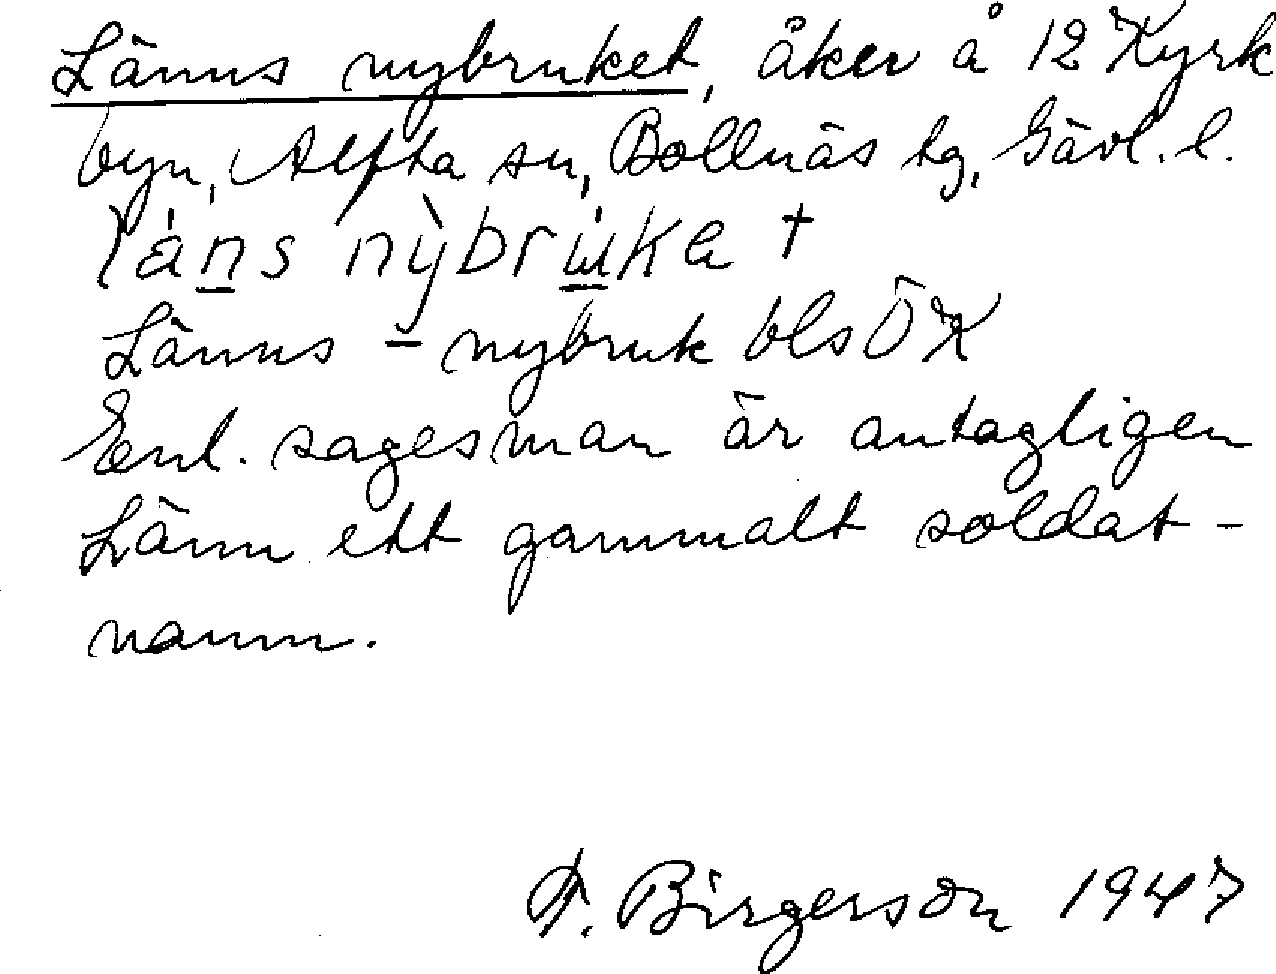 Länns nybruket, åker å 12 Kyrk
byn, Alfta sn, Bollnäs tg, Gävl. l.
Länns - nybruk bls ÖK
Enl. sagesman är antagligen
Länn ett gammalt soldat-
namn.
F. Birgerson 1947